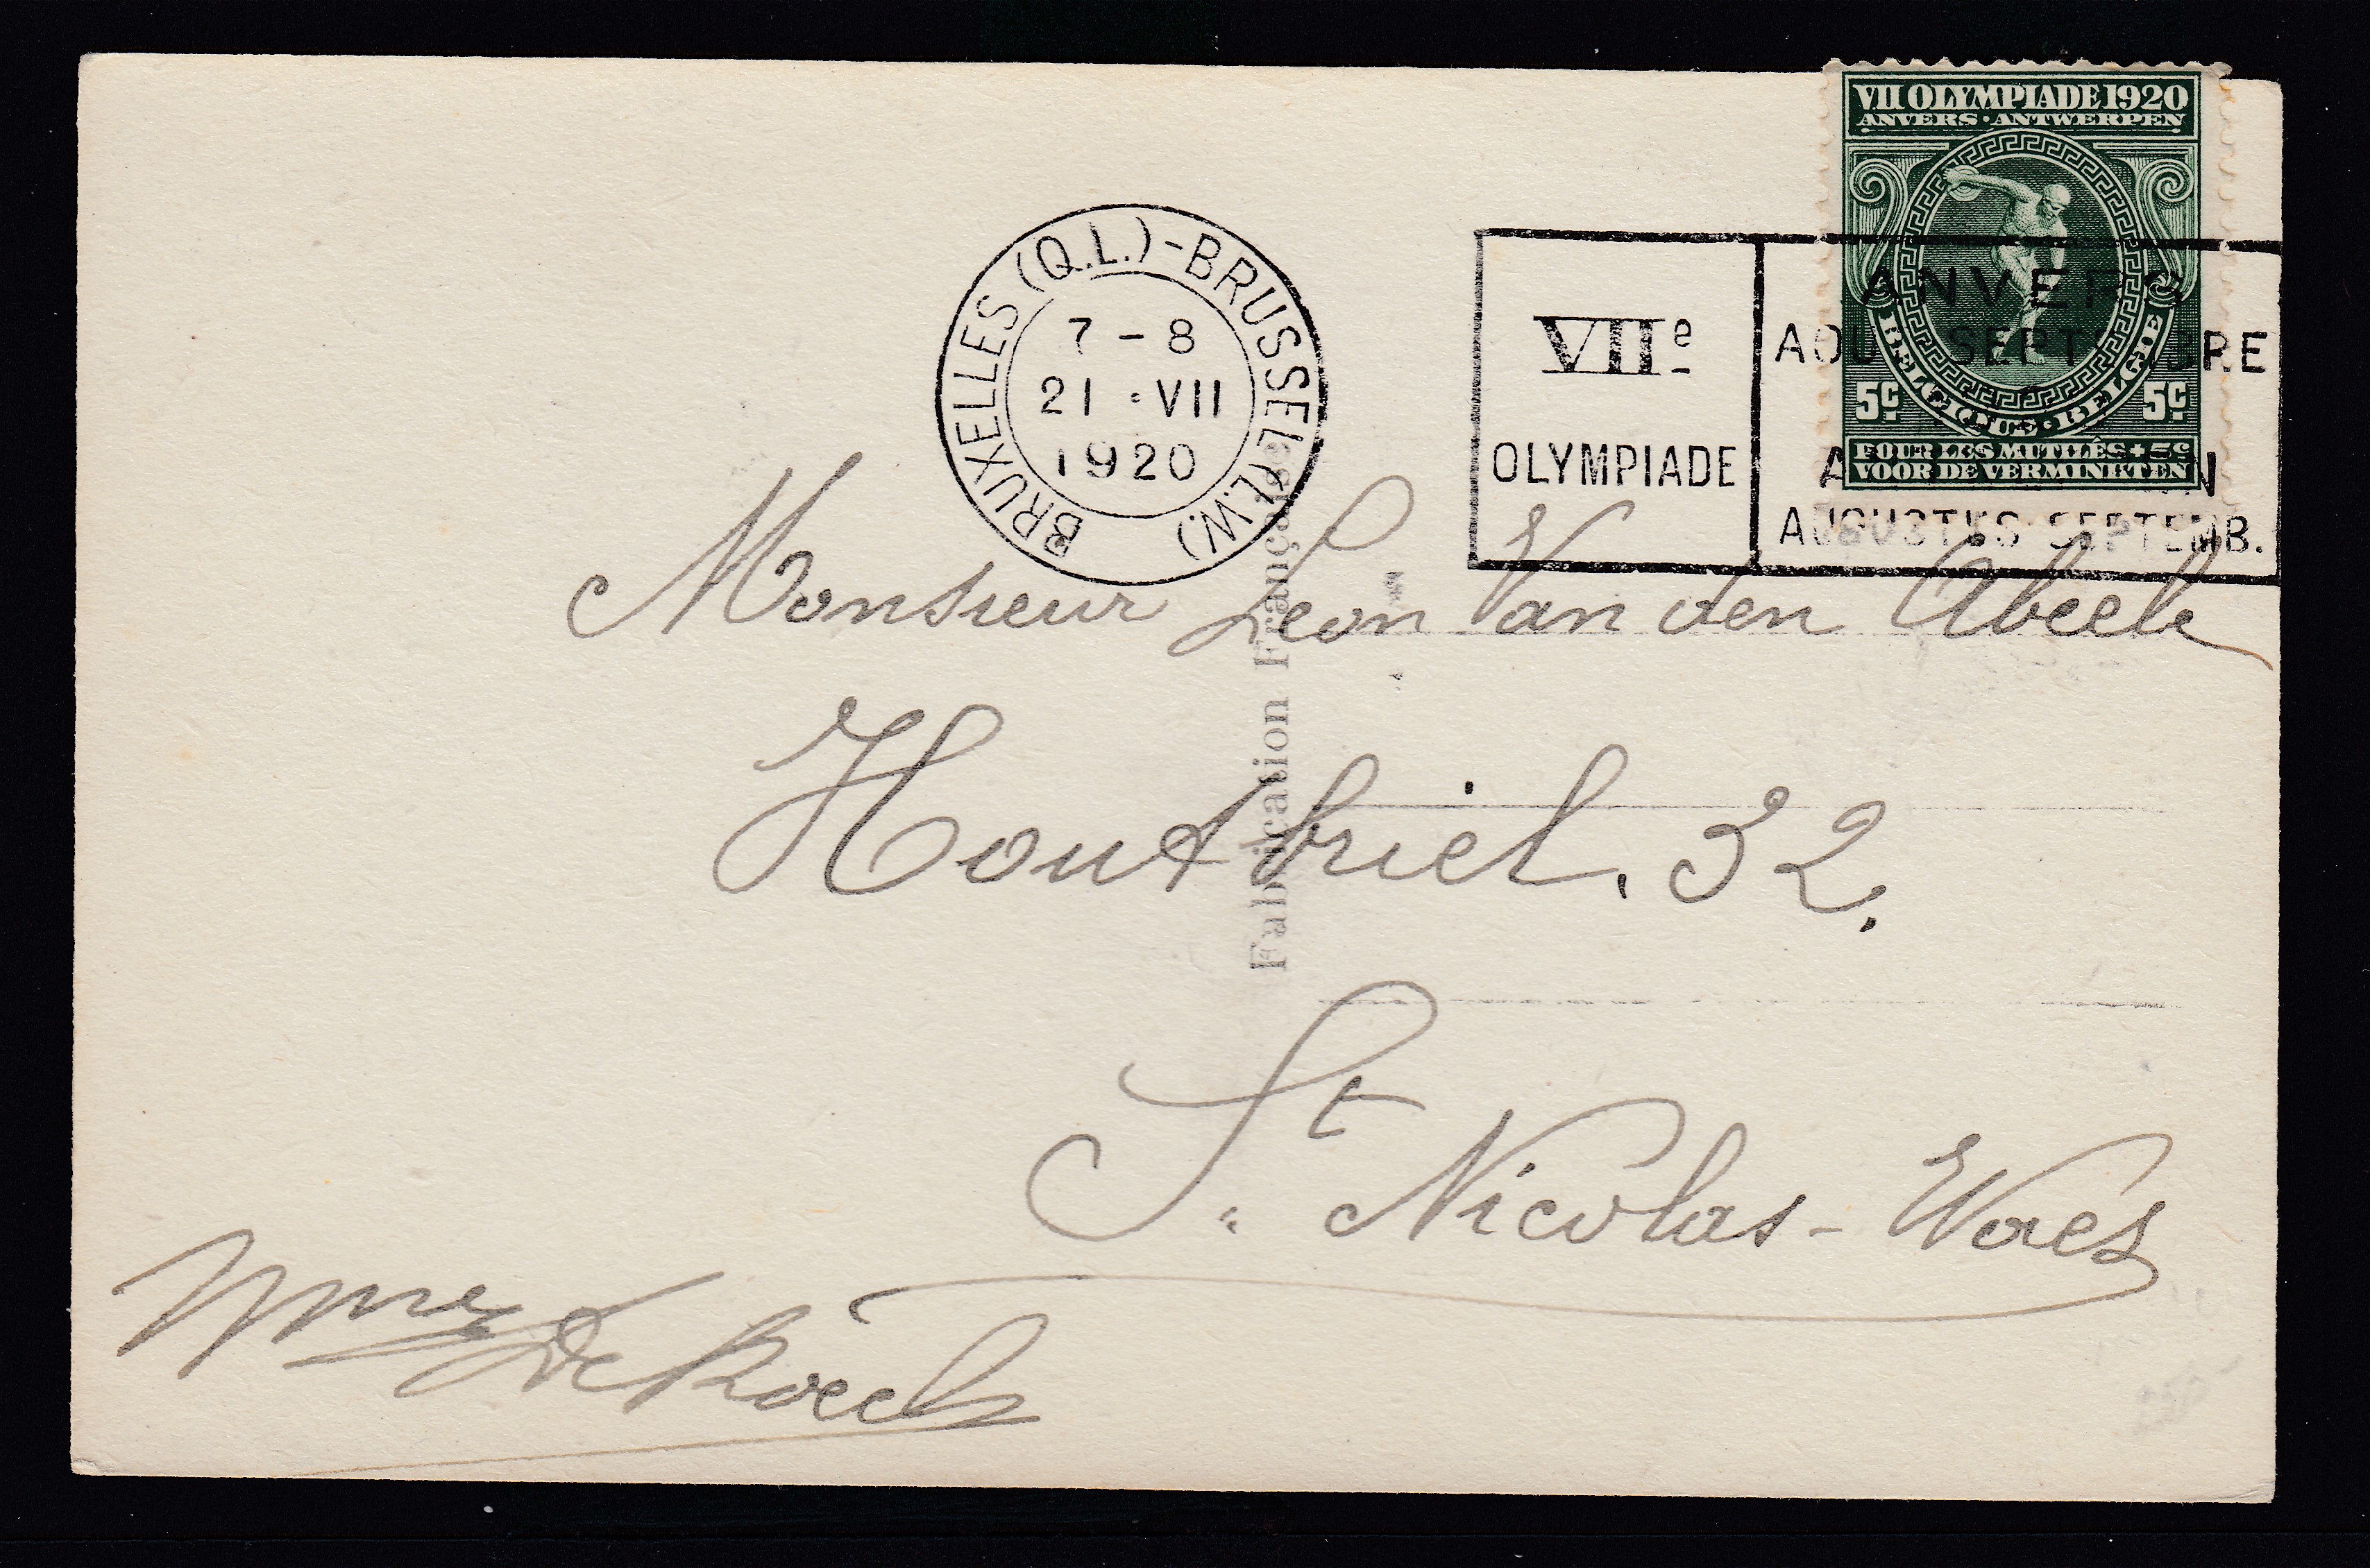 VII OLYMPIADE 1920
ANVERS · ANTWERPEN
BELGIQUE · BELGIE
5c 5c
POUR LES MUTILÉS + 5c
VOOR DE VERMINKTEN
BRUXELLES (Q.L.) - BRUSSEL (L.W.)
7 - 8
21 · VII
1920
VIIe
OLYMPIADE
ANVERS
AOUT SEPTEMBRE
ANTWERPEN
AUGUSTUS-SEPTEMB.
Fabrication Française
Monsieur Leon Van den Abeele
Houtbriel. 32.
St Nicolas - Waes
Mme De